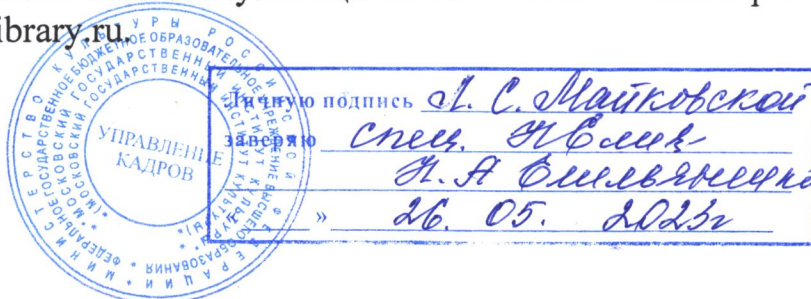 ibrary.ru.
МИНИСТЕРСТВО КУЛЬТУРЫ РОССИЙСКОЙ ФЕДЕРАЦИИ
ФЕДЕРАЛЬНОЕ ГОСУДАРСТВЕННОЕ БЮДЖЕТНОЕ ОБРАЗОВАТЕЛЬНОЕ УЧРЕЖДЕНИЕ ВЫСШЕГО ОБРАЗОВАНИЯ
МОСКОВСКИЙ ГОСУДАРСТВЕННЫЙ ИНСТИТУТ КУЛЬТУРЫ
УПРАВЛЕНИЕ
КАДРОВ
Личную подпись Л. С. Майковской
заверяю спец.
Н. А
« » 26. 05. 2023г